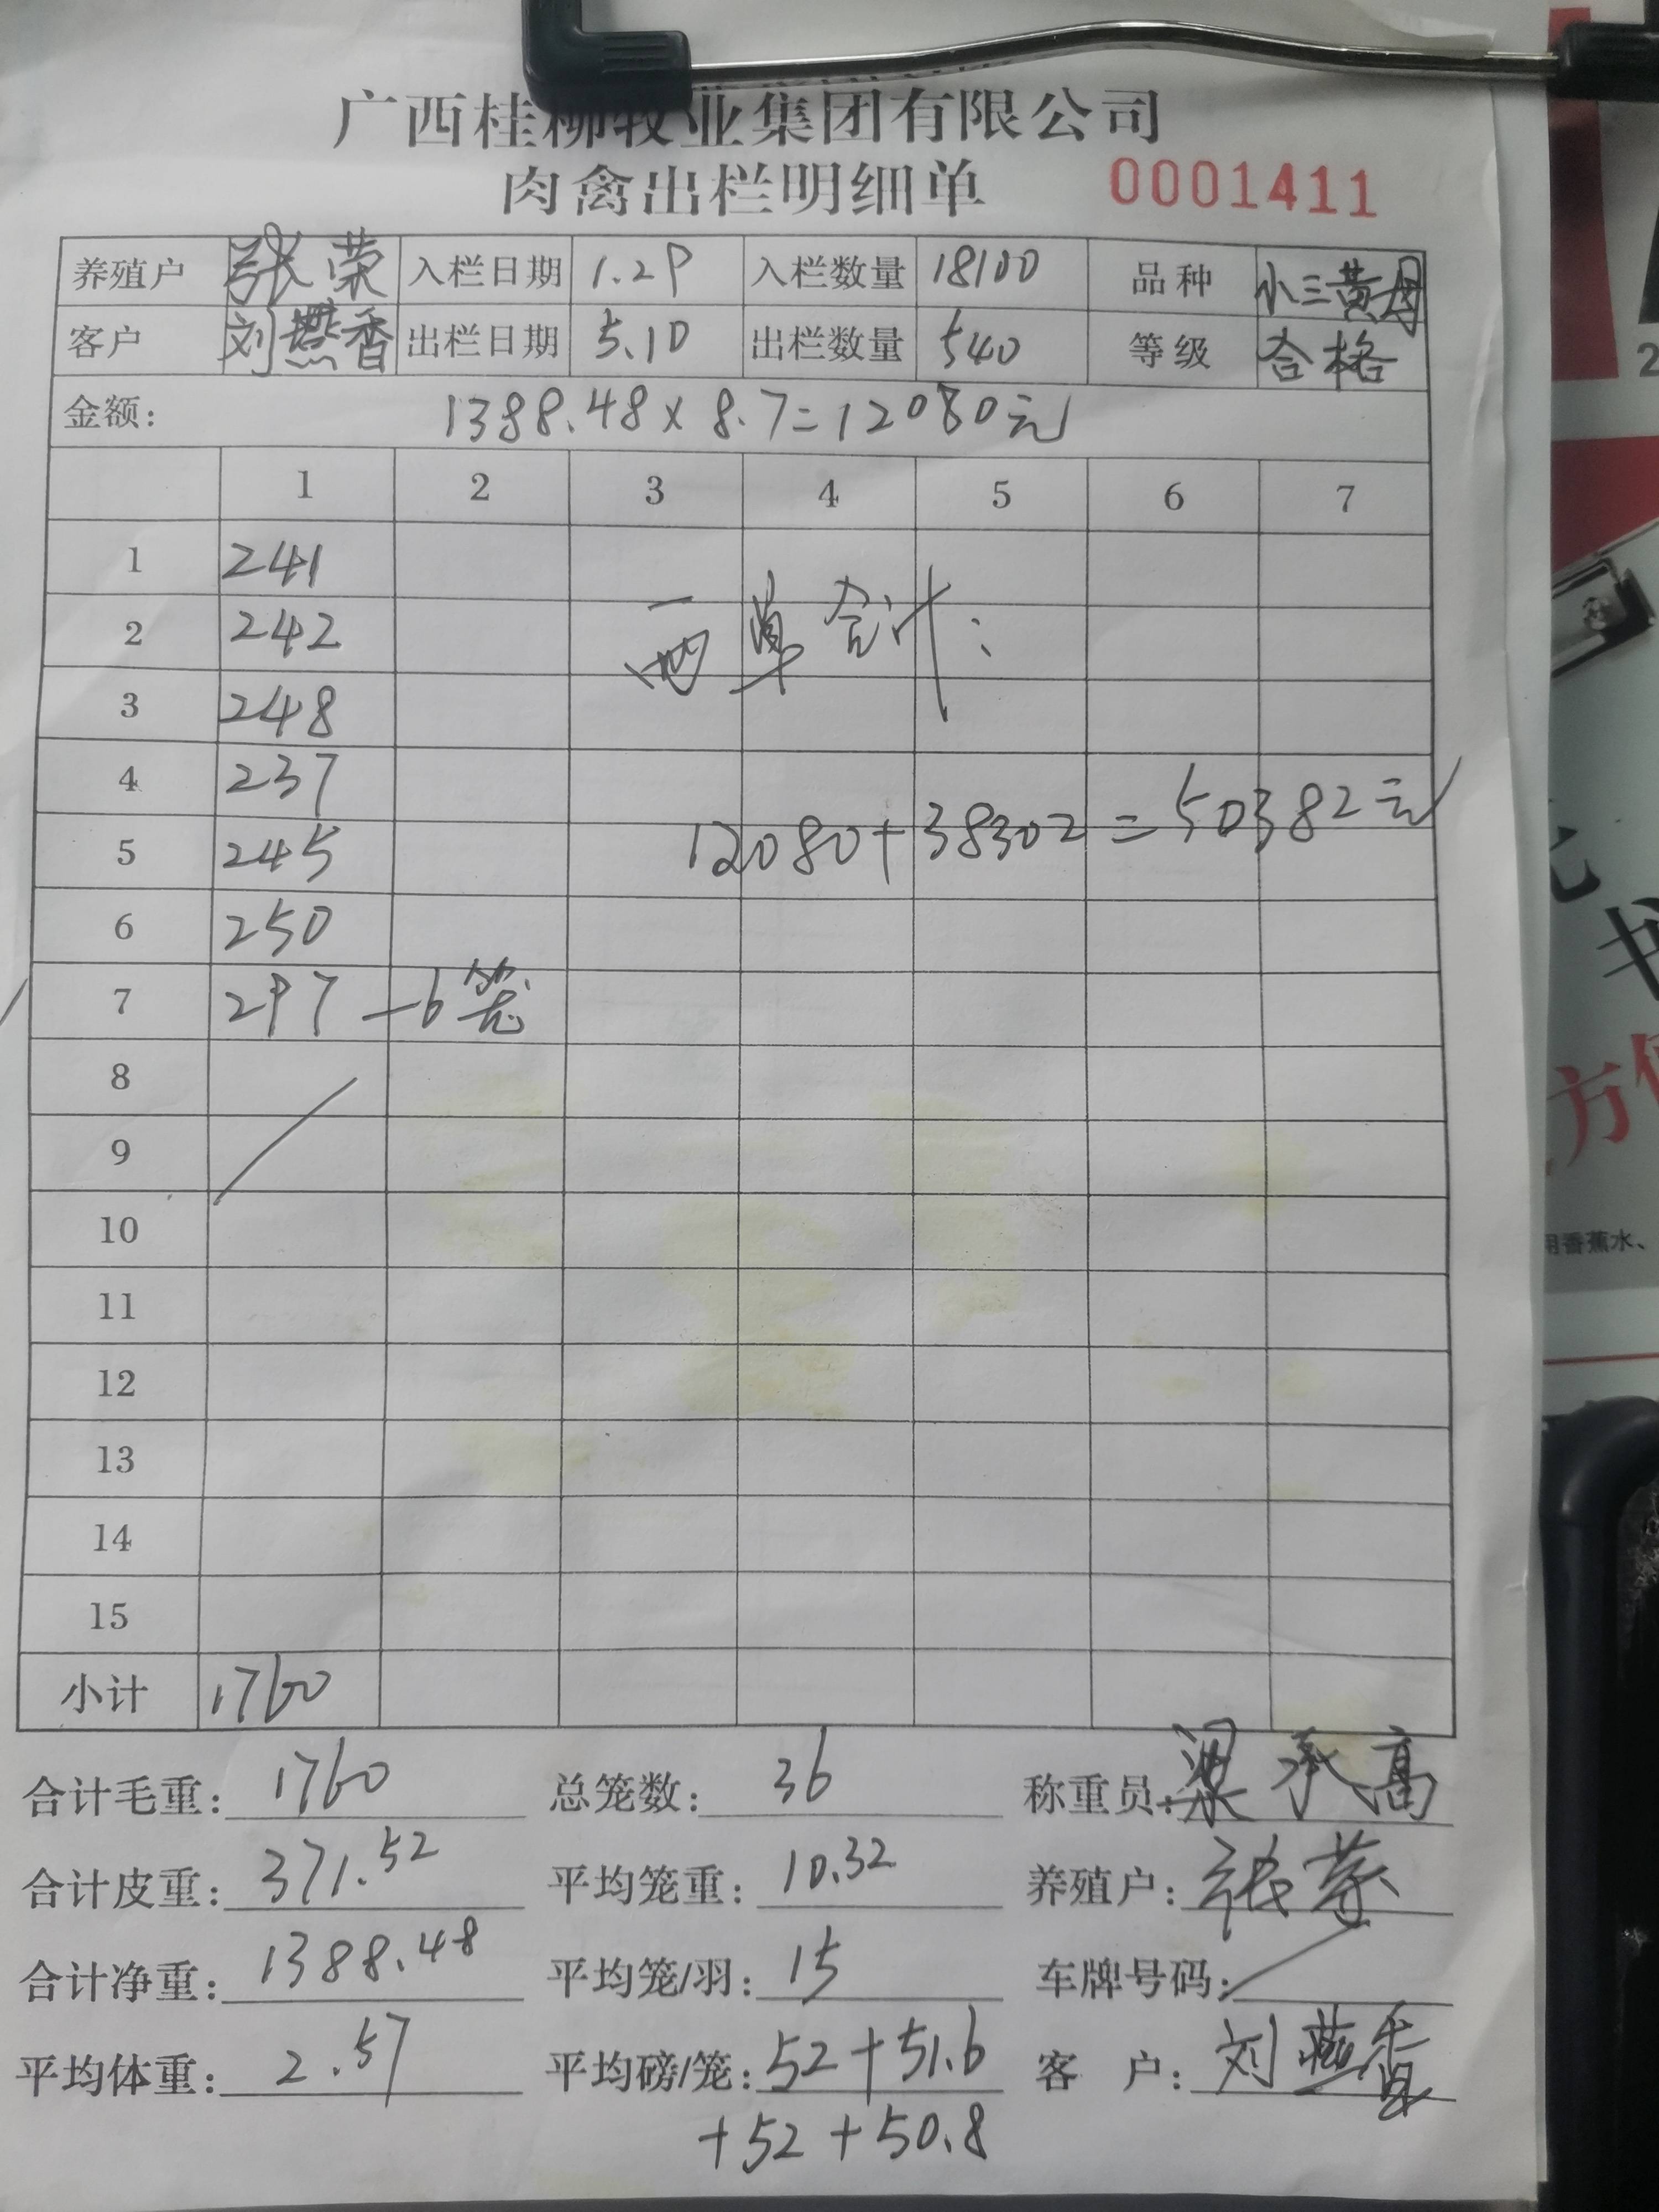 广西桂柳牧业集团有限公司
肉禽出栏明细单 0001411
养殖户 张荣 入栏日期 1.29 入栏数量 18100 品种 小三黄母
客户 刘燕香 出栏日期 5.10 出栏数量 540 等级 合格
金额: 1388.48×8.7=12080元
1 2 3 4 5 6 7
1 241
2 242
两单合计:
3 248
4 237
12080+38302=50382元
5 245
6 250
7 297—6笼
8
9
10
11
12
13
14
15
小计 1760
合计毛重: 1760 总笼数: 36 称重员: 梁承高
合计皮重: 371.52 平均笼重: 10.32 养殖户: 张荣
合计净重: 1388.48 平均笼/羽: 15 车牌号码:
平均体重: 2.57 平均磅/笼: 52+51.6 客 户: 刘燕香
+52+50.8
方
用香蕉水、